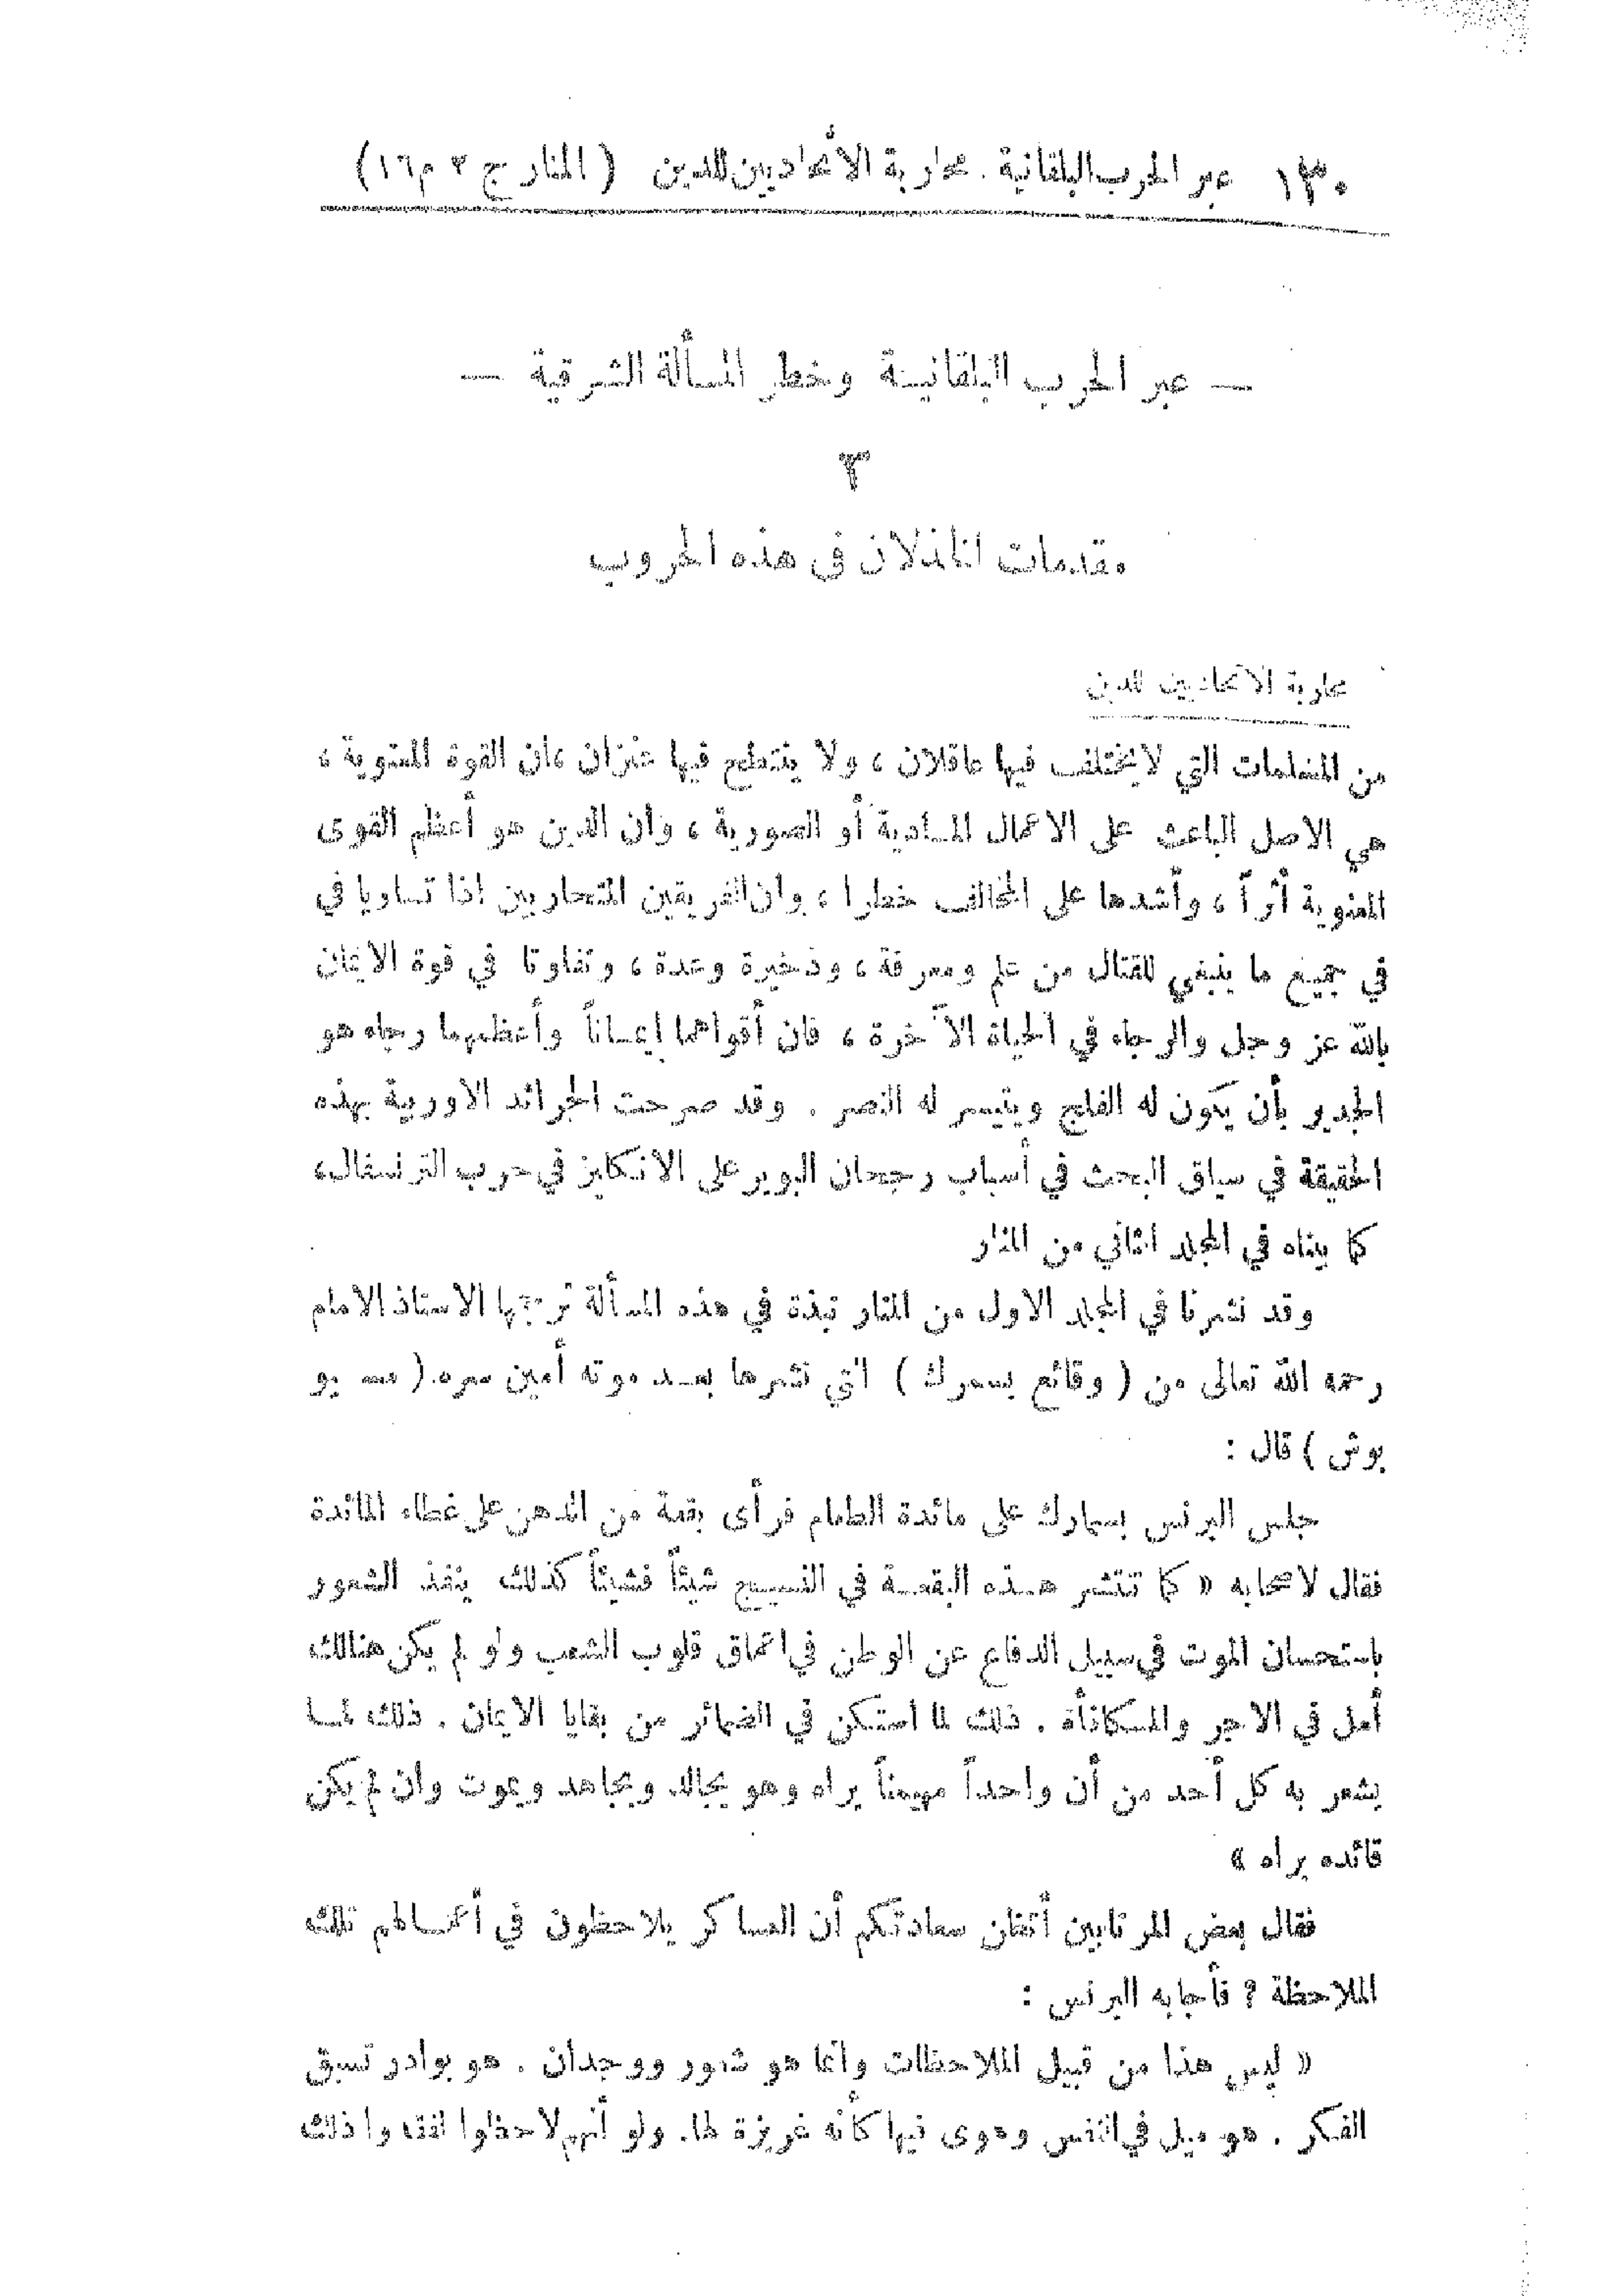 ١٣٠ عبر الحرب البلقانية . محاربة الأتحاديين للدين ( المنار ج ٢ م ١٦)
— عبر الحرب البلقانية وخطر المسألة الشرقية —
٣
مقدمات الخذلان في هذه الحروب
محاربة الاتحاديين للدين
من المسلمات التي لا يختلف فيها عاقلان ، ولا ينتطح فيها عنزان ، ان القوة المعنوية ،
هي الاصل الباعث على الاعمال المادية أو الصورية ، وان الدين هو أعظم القوى
المعنوية أثراً ، وأشدها على المخالف خطرا ، وان الفريقين المتحاربين اذا تساويا في
في جميع ما ينبغي للقتال من علم ومعرفة ، وذخيرة وعدة ، وتفاوتا في قوة الايمان
بالله عز وجل والرجاء في الحياة الآخرة ، فان أقواهما إيماناً وأعظمهما رجاء هو
الجدير بأن يكون له الفلج ويتيسر له النصر . وقد صرحت الجرائد الاوربية بهذه
الحقيقة في سياق البحث في أسباب رجحان البوير على الانكليز في حرب الترنسفال،
كما بيناه في المجلد الثاني من المنار
وقد نشرنا في المجلد الاول من المنار نبذة في هذه المسألة ترجمها الاستاذ الامام
رحمه الله تعالى من ( وقائع بسمرك ) التي نشرها بعد موته أمين سره ( مسيو
بوش ) قال :
جلس البرنس بسمارك على مائدة الطعام فرأى بقعة من الدهن على غطاء المائدة
فقال لاصحابه « كما تنتشر هذه البقعة في النسيج شيئاً فشيئاً كذلك ينفذ الشعور
باستحسان الموت في سبيل الدفاع عن الوطن في اعماق قلوب الشعب ولو لم يكن هنالك
أمل في الاجر والمكافأة . ذلك لما استكن في الضمائر من بقايا الايمان . ذلك لما
يشعر به كل أحد من أن واحداً مهيمناً يراه وهو يجالد ويجاهد ويموت وان لم يكن
قائده يراه »
فقال بعض المرتابين أتظن سعادتكم أن العساكر يلاحظون في أعمالهم تلك
الملاحظة ؟ فأجابه البرنس :
« ليس هذا من قبيل الملاحظات وانما هو شعور ووجدان . هو بوادر تسبق
الفكر . هو ميل في النفس وهوى فيها كأنه غريزة لها. ولو أنهم لاحظوا لفقدوا ذلك